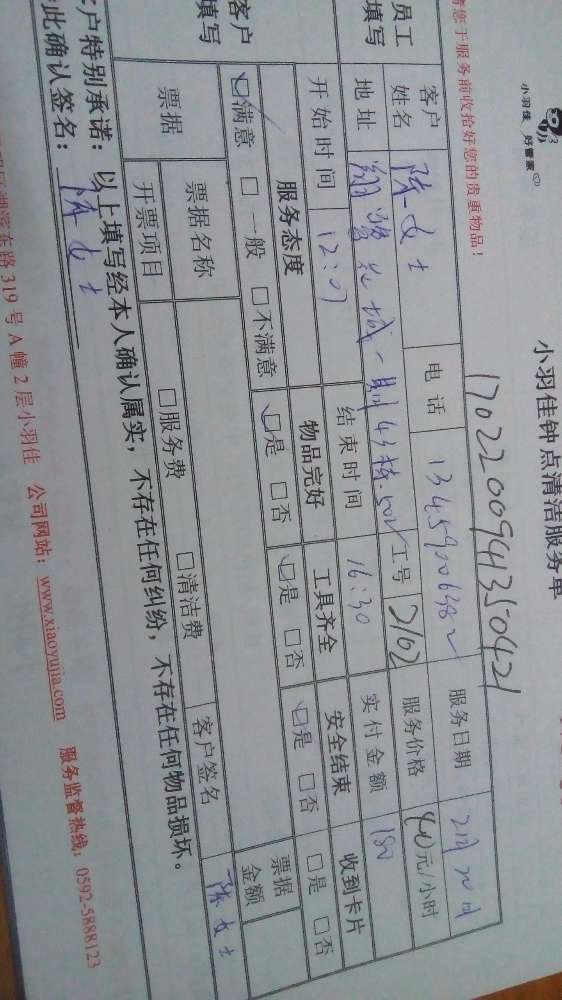 小羽佳 好管家
小羽佳钟点清洁服务单
您于服务前收拾好您的贵重物品！
17022009413350421
员工填写
客户姓名 陈女士 电话 服务日期 2月20日
地址 工号 2102 服务价格 40元/小时
开始时间 12:07 结束时间 16:30 实付金额 180
客户填写
服务态度 物品完好 工具齐全 安全结束 收到卡片
☑满意 □一般 □不满意 ☑是 □否 ☑是 □否 ☑是 □否 □是 □否
票据 票据名称 □服务费 □清洁费 票据金额
开票项目 客户签名 陈女士
户特别承诺：以上填写经本人确认属实，不存在任何纠纷，不存在任何物品损坏。
此确认签名：陈女士
东路319号A幢2层小羽佳 公司网站：www.xiaoyujia.com 服务监督热线：0592-5888123